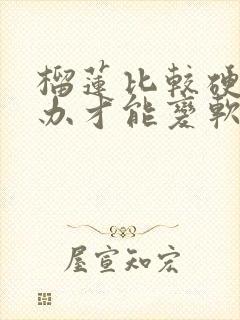 榴莲比較硬
办才能變軟
屋宣知宏